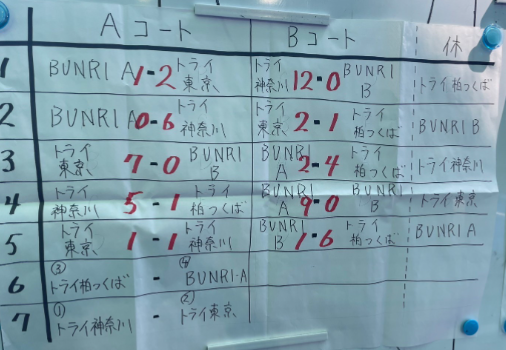 Aコート Bコート 休
1 BUNRI A 1-2 トライ東京 トライ神奈川 12-0 BUNRI B トライ柏つくば
2 BUNRI A 0-6 トライ神奈川 トライ東京 2-1 トライ柏つくば BUNRI B
3 トライ東京 7-0 BUNRI B BUNRI A 2-4 トライ柏つくば トライ神奈川
4 トライ神奈川 5-1 トライ柏つくば BUNRI A 9-0 BUNRI B トライ東京
5 トライ東京 1-1 トライ神奈川 BUNRI B 1-6 トライ柏つくば BUNRI A
6 ③トライ柏つくば - ④BUNRI A
7 ①トライ神奈川 - ②トライ東京